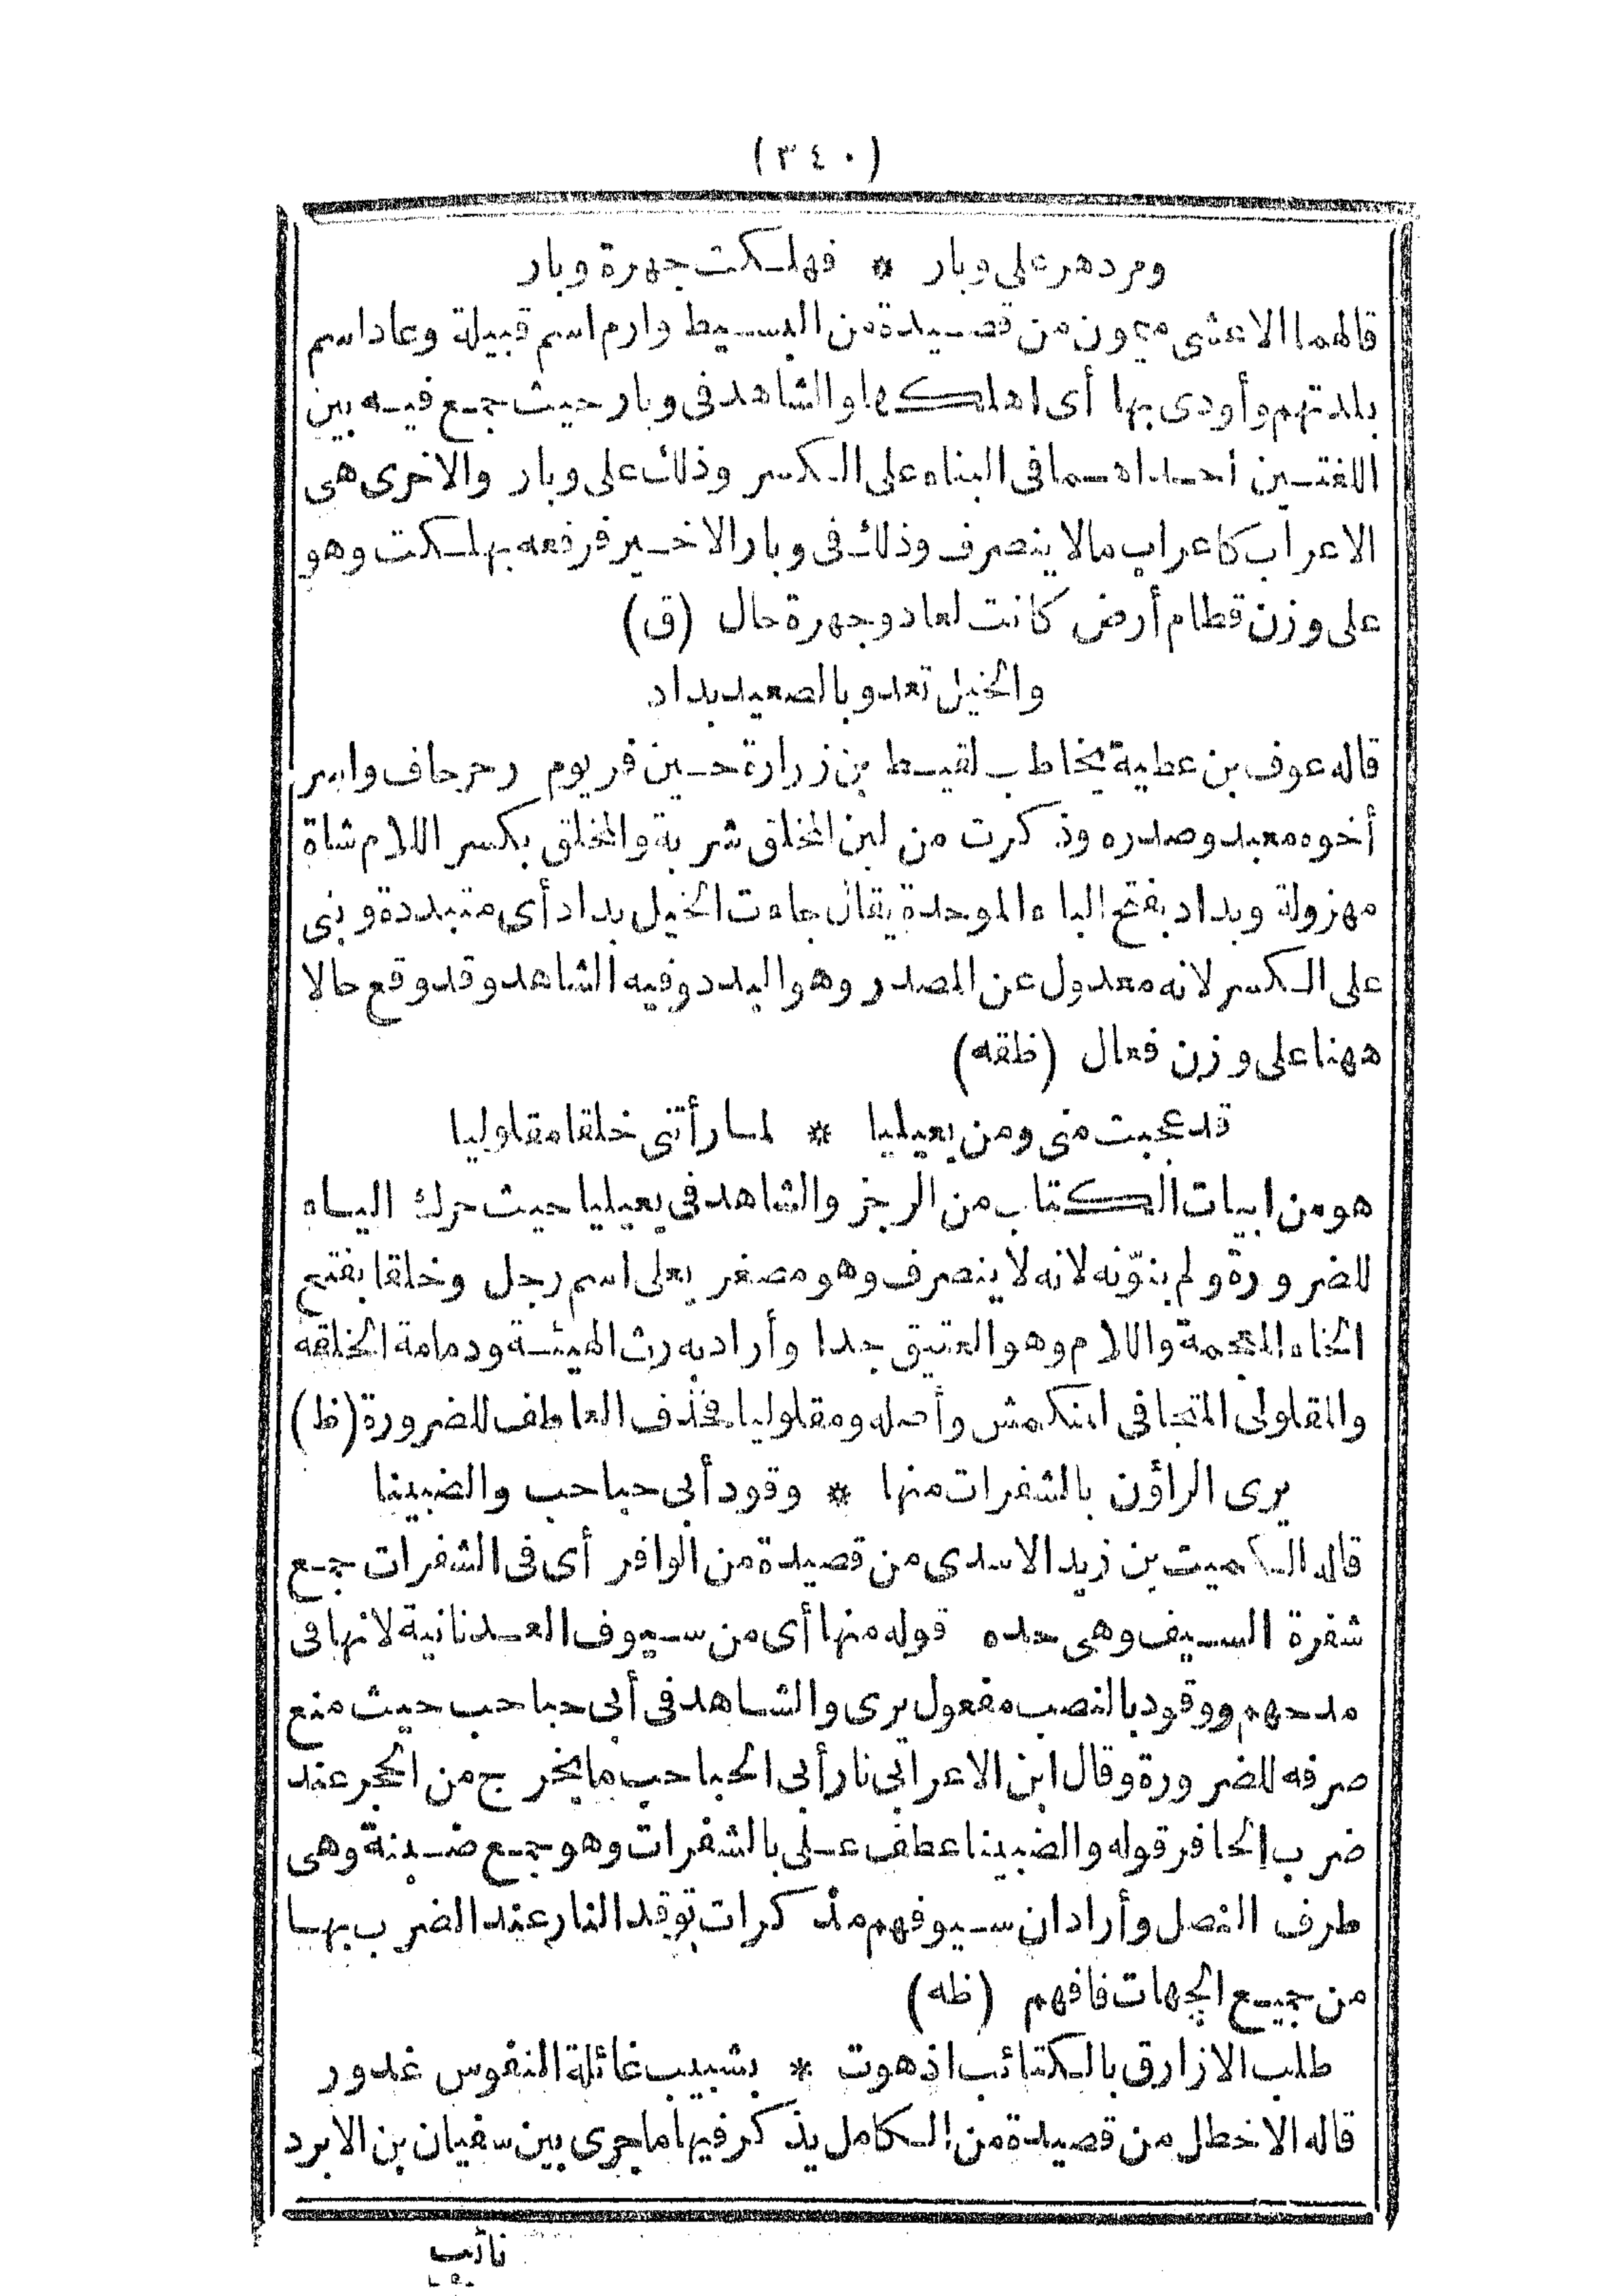 (٣٤٠)
ومر دهر على وبار * فهلكت جهرة وبار
قالهما الاعشى ميمون من قصيدة من البسيط وارم اسم قبيلة وعاد اسم
بلدتهم وأودى بها أى اهلكها والشاهد فى وبار حيث جمع فيه بين
اللغتين احداهما فى البناء على الكسر وذلك على وبار والاخرى هى
الاعراب كاعراب مالا ينصرف وذلك فى وبار الاخير فرفعه بهلكت وهو
على وزن قطام أرض كانت لعاد وجهرة حال (ق)
والخيل تعدو بالصعيد بداد
قاله عوف بن عطية يخاطب لقيط بن زرارة حين فر يوم رحرحاف واسر
أخوه معبد وصدره وذكرت من لبن المحلق شربة والمحلق بكسر اللام شاة
مهزولة وبداد بفتح الباء الموحدة يقال جاءت الخيل بداد أى متبددة وبنى
على الكسر لانه معدول عن المصدر وهو البدد وفيه الشاهد وقد وقع حالا
ههنا على وزن فعال (ظقه)
قد عجبت منى ومن يعيليا * لما رأتنى خلقا مقلوليا
هو من ابيات الكتاب من الرجز والشاهد فى يعيليا حيث حرك الياء
للضرورة ولم ينوّنه لانه لا ينصرف وهو مصغر يعلى اسم رجل وخلقا بفتح
الخاء المعجمة واللام وهو العتيق جدا وأراد به رث الهيئة ودمامة الخلقه
والمقلولى المتجافى المنكمش وأصله ومقلوليا فحذف العاطف للضرورة (ظ)
يرى الراؤن بالشفرات منها * وقود أبى حباحب والضبينا
قاله الكميت بن زيد الاسدى من قصيدة من الوافر أى فى الشفرات جمع
شفرة السيف وهى حده قوله منها أى من سيوف العدنانية لانها فى
مدحهم ووقود بالنصب مفعول يرى والشاهد فى أبى حباحب حيث منع
صرفه للضرورة وقال ابن الاعرابى نار أبى الحباحب ما يخرج من الحجر عند
ضرب الحافر قوله والضبينا عطف على بالشفرات وهو جمع ضبنة وهى
طرف النصل وأراد ان سيوفهم مذكرات توقد النار عند الضرب بها
من جميع الجهات فافهم (ظه)
طلب الازارق بالكتائب اذ هوت * بشبيب غائلة النفوس غدور
قاله الاخطل من قصيدة من الكامل يذكر فيها ما جرى بين سفيان بن الابرد
نائب